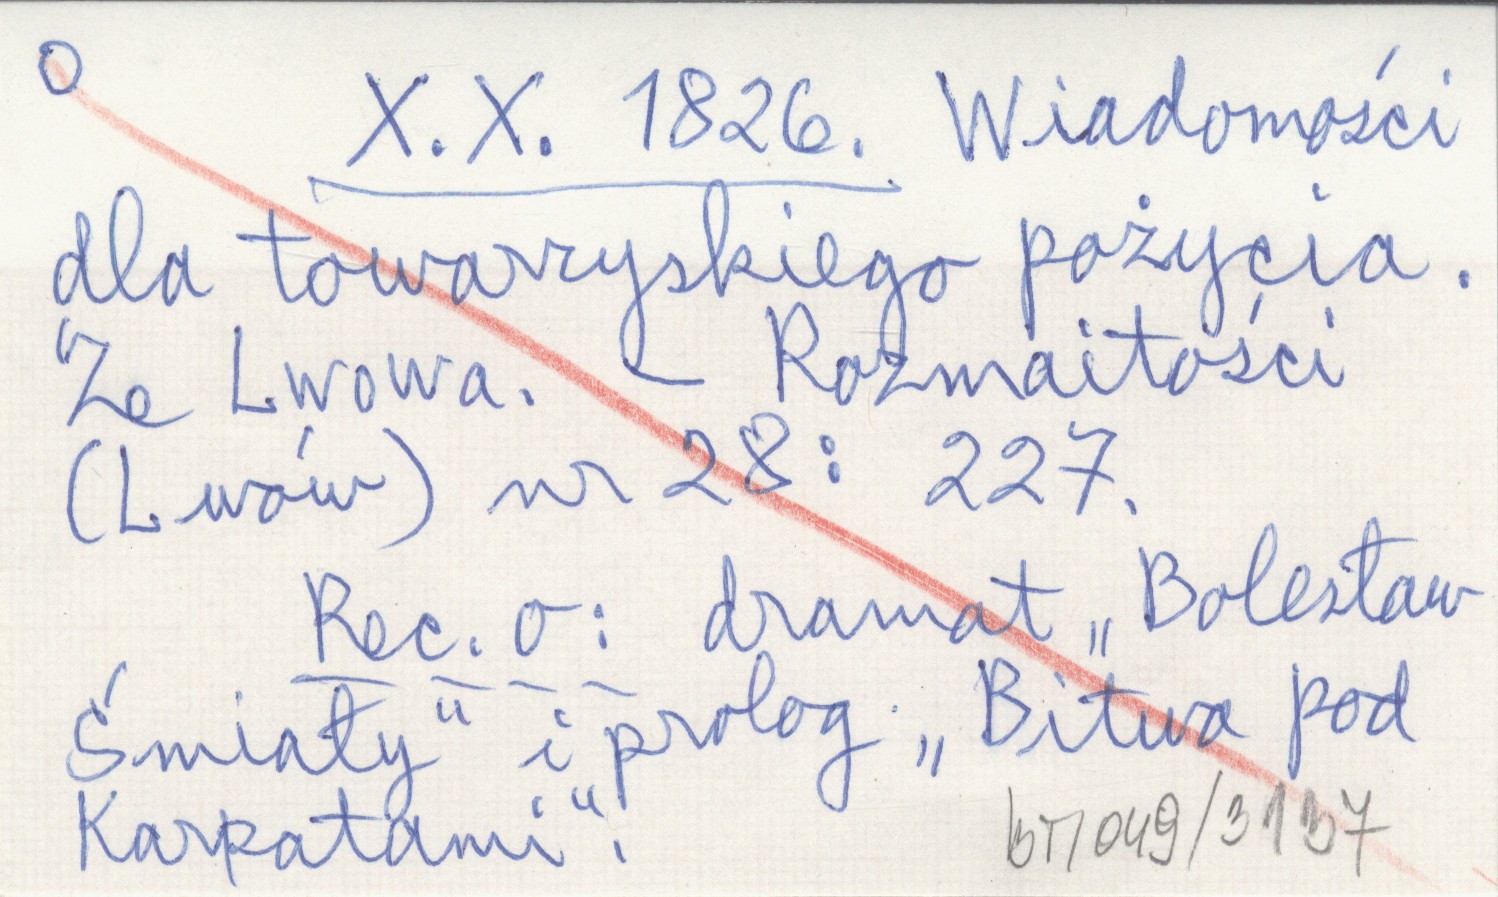 O
X.X. 1826. Wiadomości
dla towarzyskiego pożycia.
Ze Lwowa. — Rozmaitości
(Lwów) nr 28: 227.
Rec. o: dramat „Bolesław
Śmiały" i prolog „Bitwa pod
Karpatami".
BT/049/3137